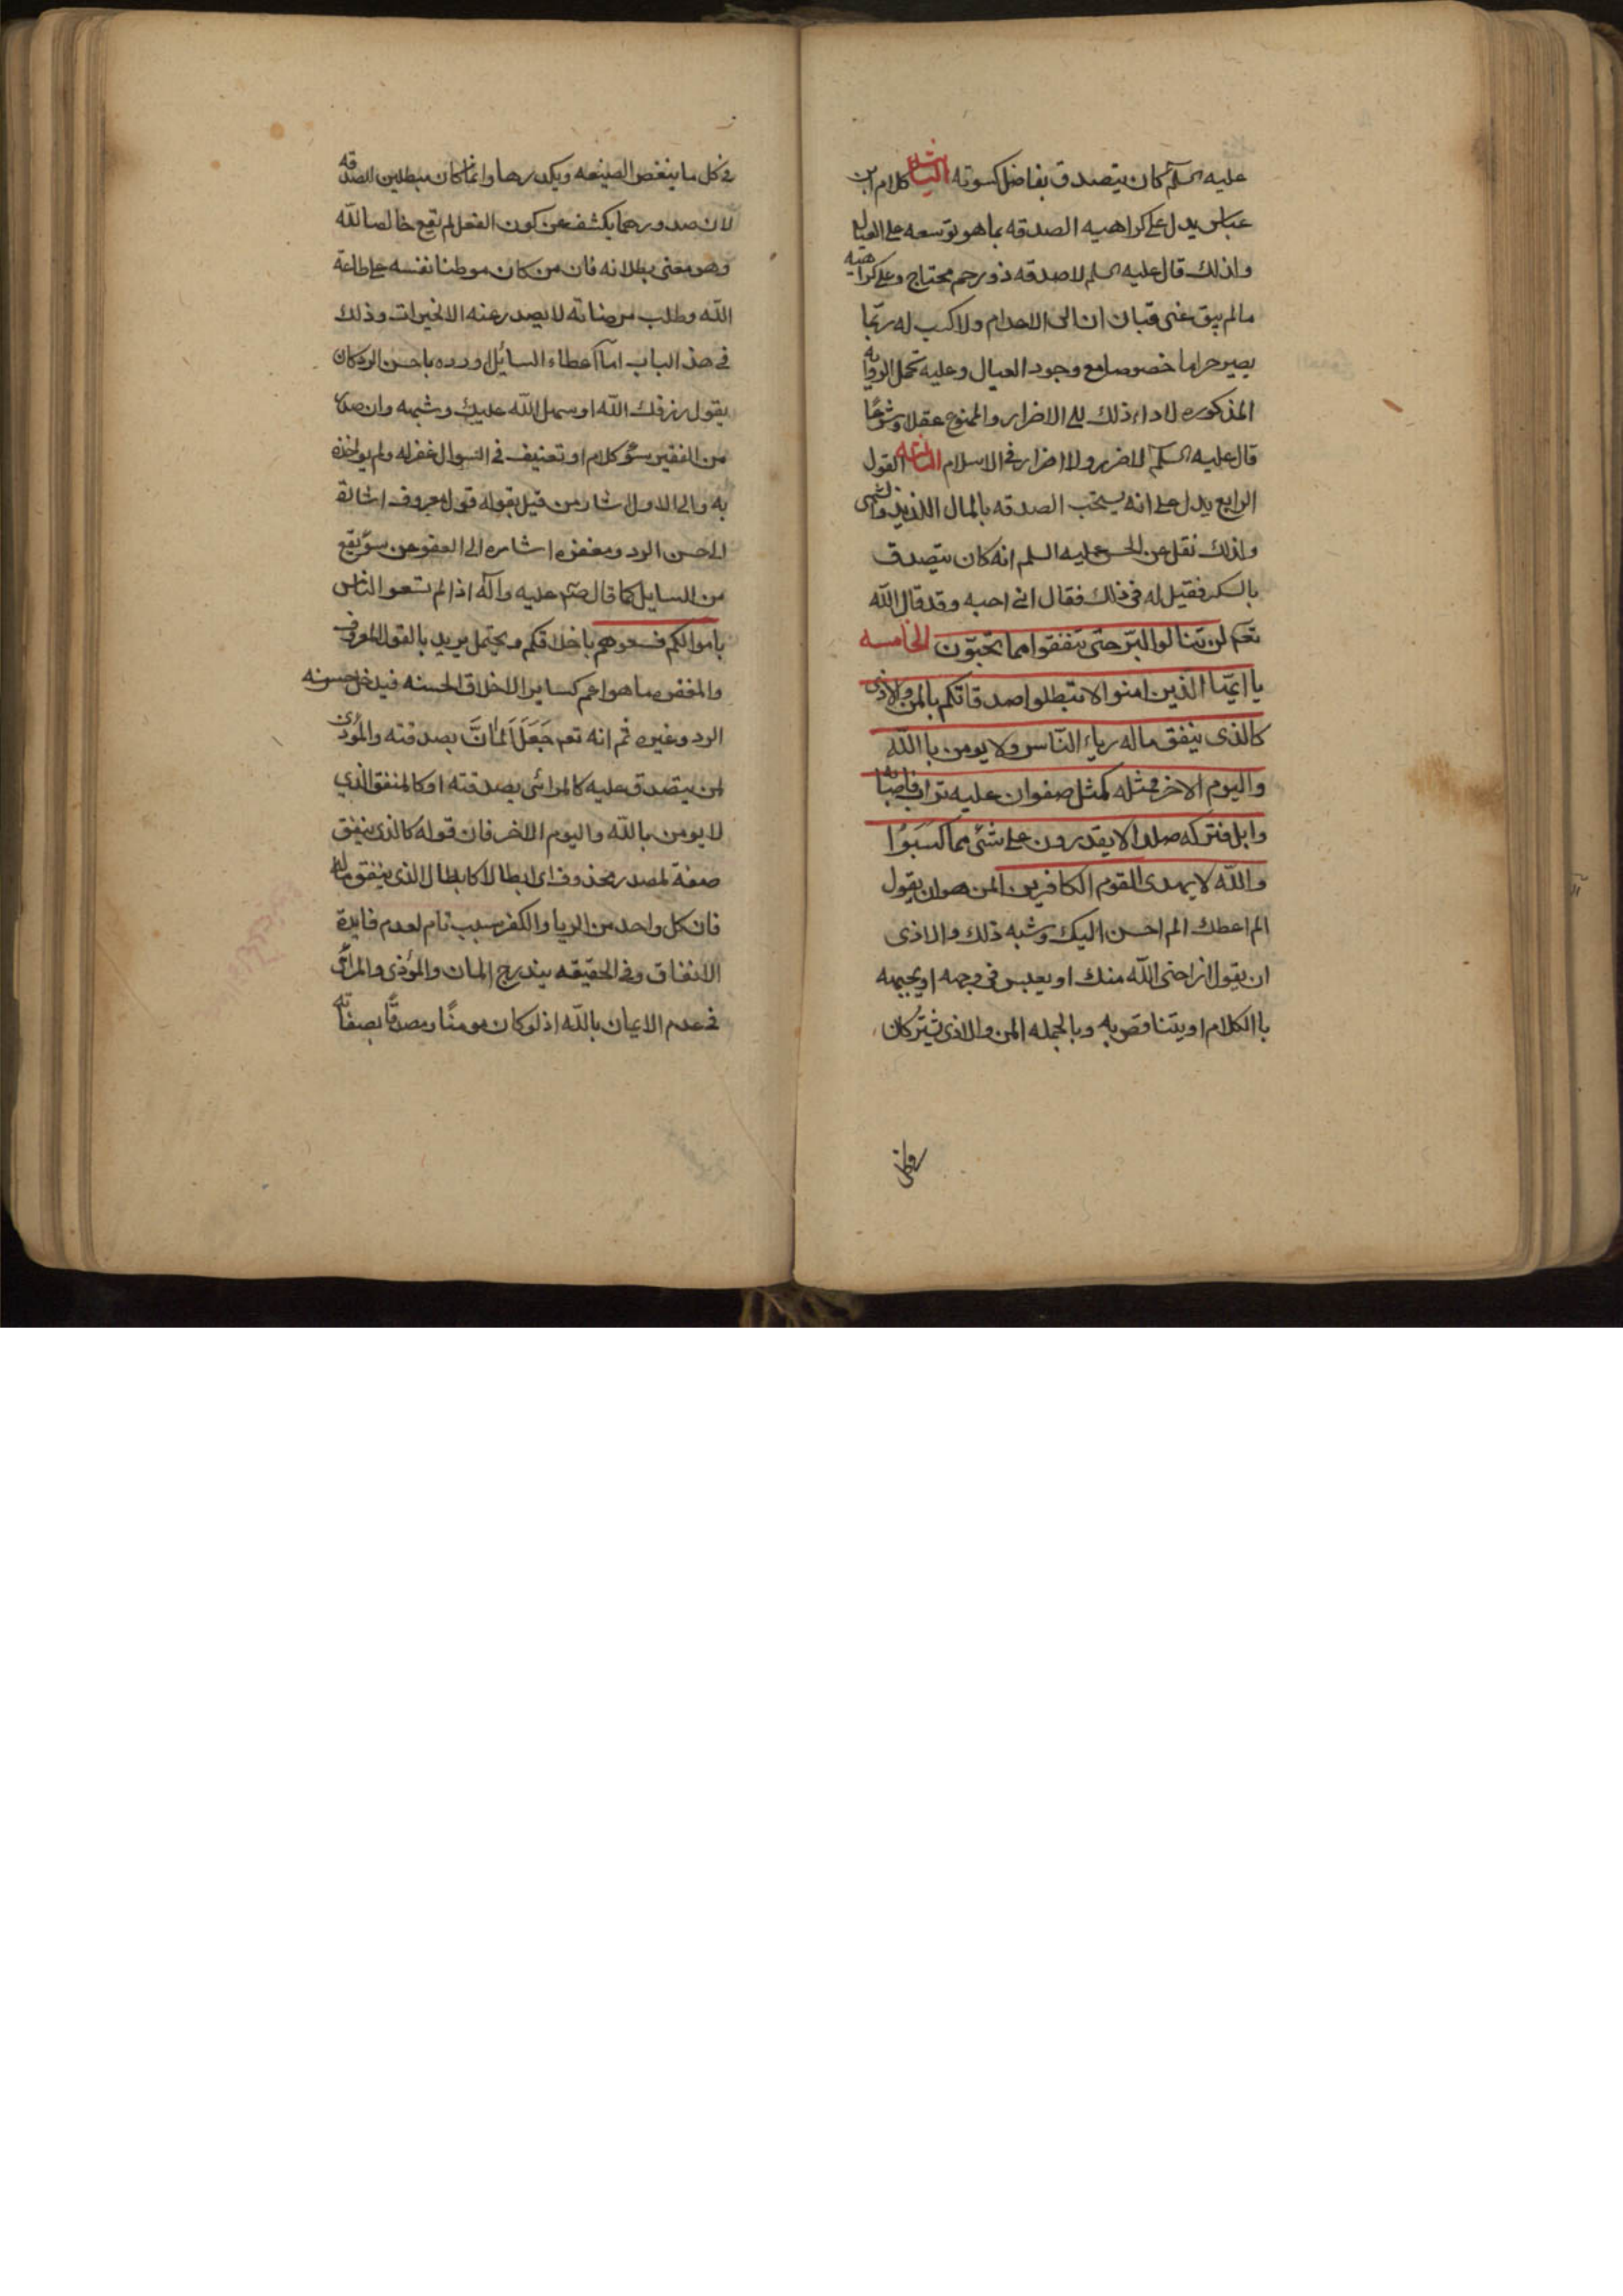 عليه السلم كان يتصدق بفاضل كسوته الثالث كلام ابن
عباس يدل على كراهيه الصدقه بما هو توسعه على العيال
ولذلك قال عليه السلم لا صدقه وذو رحم محتاج وعلى كراهيه
مالم يبق غنى قبان ان الى الاعدام ولا كسب له ربّما
يصير حراما خصوصا مع وجود العيال وعليه تحمل الروايه
المذكوره لاداء ذلك الى الاضرار والممنوع عقلا وشرعًا
قال عليه السلم لا ضرر ولا اضرار فى الاسلام القول
الرابع يدل على انه يستحب الصدقه بالمال اللذيذ والشهى
ولذلك نقل عن الحسن عليه السلم انه كان يتصدق
بالسكر فقيل له فى ذلك فقال انى احبه وقد قال الله
تعم لن تنالوا البرّ حتى تنفقوا مما تحبّون الخامسه
يا ايّها الذين امنوا لا تبطلوا صدقاتكم بالمن والاذى
كالذى ينفق ماله رياء النّاس ولا يومن باالله
واليوم الاخر فمثله كمثل صفوان عليه تراب فاصابه
وابل فتركه صلدا لا يقدرون على شئى مما كسبوا
والله لا يهدى القوم الكافرين المن هو ان يقول
الم اعطك الم احسن اليك وشبه ذلك والاذى
ان يقول اراحنى الله منك او يعبس فى وجهه او يجبهه
باالكلام او يتناقص به وبالجمله المن والاذى يشتركان
فى كل ما ينغص الصنيعه ويكدرها وانما كان مبطلين للصدقه
لان صدورهما يكشف عن كون الفعل لم يقع خالصا لله
وهو معنى بطلانه فان من كان موطنا نفسه على طاعة
الله وطلب مرضاته لا يصدر عنه الا الخيرات وذلك
فى هذ الباب امّا اعطاء السائل او رده باحسن الرد كان
يقول رزقك الله او سهل الله عليك وشبهه وان صدر
من الفقير سوٓ كلام او تعنيف فى السوال غفر له ولم يواخذه
به والى الاول اشار من قيل بقوله قول معروف اشارة
الى حسن الرد ومغفره اشاره الى العفو عن سوٓ يقع
من السايل كما قال صلّى عليه وآله اذا لم تسعو الناس
باموالكم فسعوهم باخلاقكم ويحتمل يريد بالقول المعروف
والمغفره ما هو اعم كساير الاخلاق الحسنه فيدخل حسونه
الرد وغيره ثم انه تعم جَعَلَ اَلمَانَّ بصدقته والمُؤذى
لمن يتصدق عليه كالمرائى بصدقته او كالمنفق الذي
لا يومن بالله واليوم الاخر فان قوله كالذى ينفق
صفة لمصدر محذوف اى ابطالا كابطال الذى ينفق ماله
فان كل واحد من الريا والكفر سبب تام لعدم فايدة
الانفاق وفى الحقيقه يندرج المان والمؤذى والمرائى
فى عدم الايمان بالله اذ لو كان مومنًا ومصدقًا بصفاته